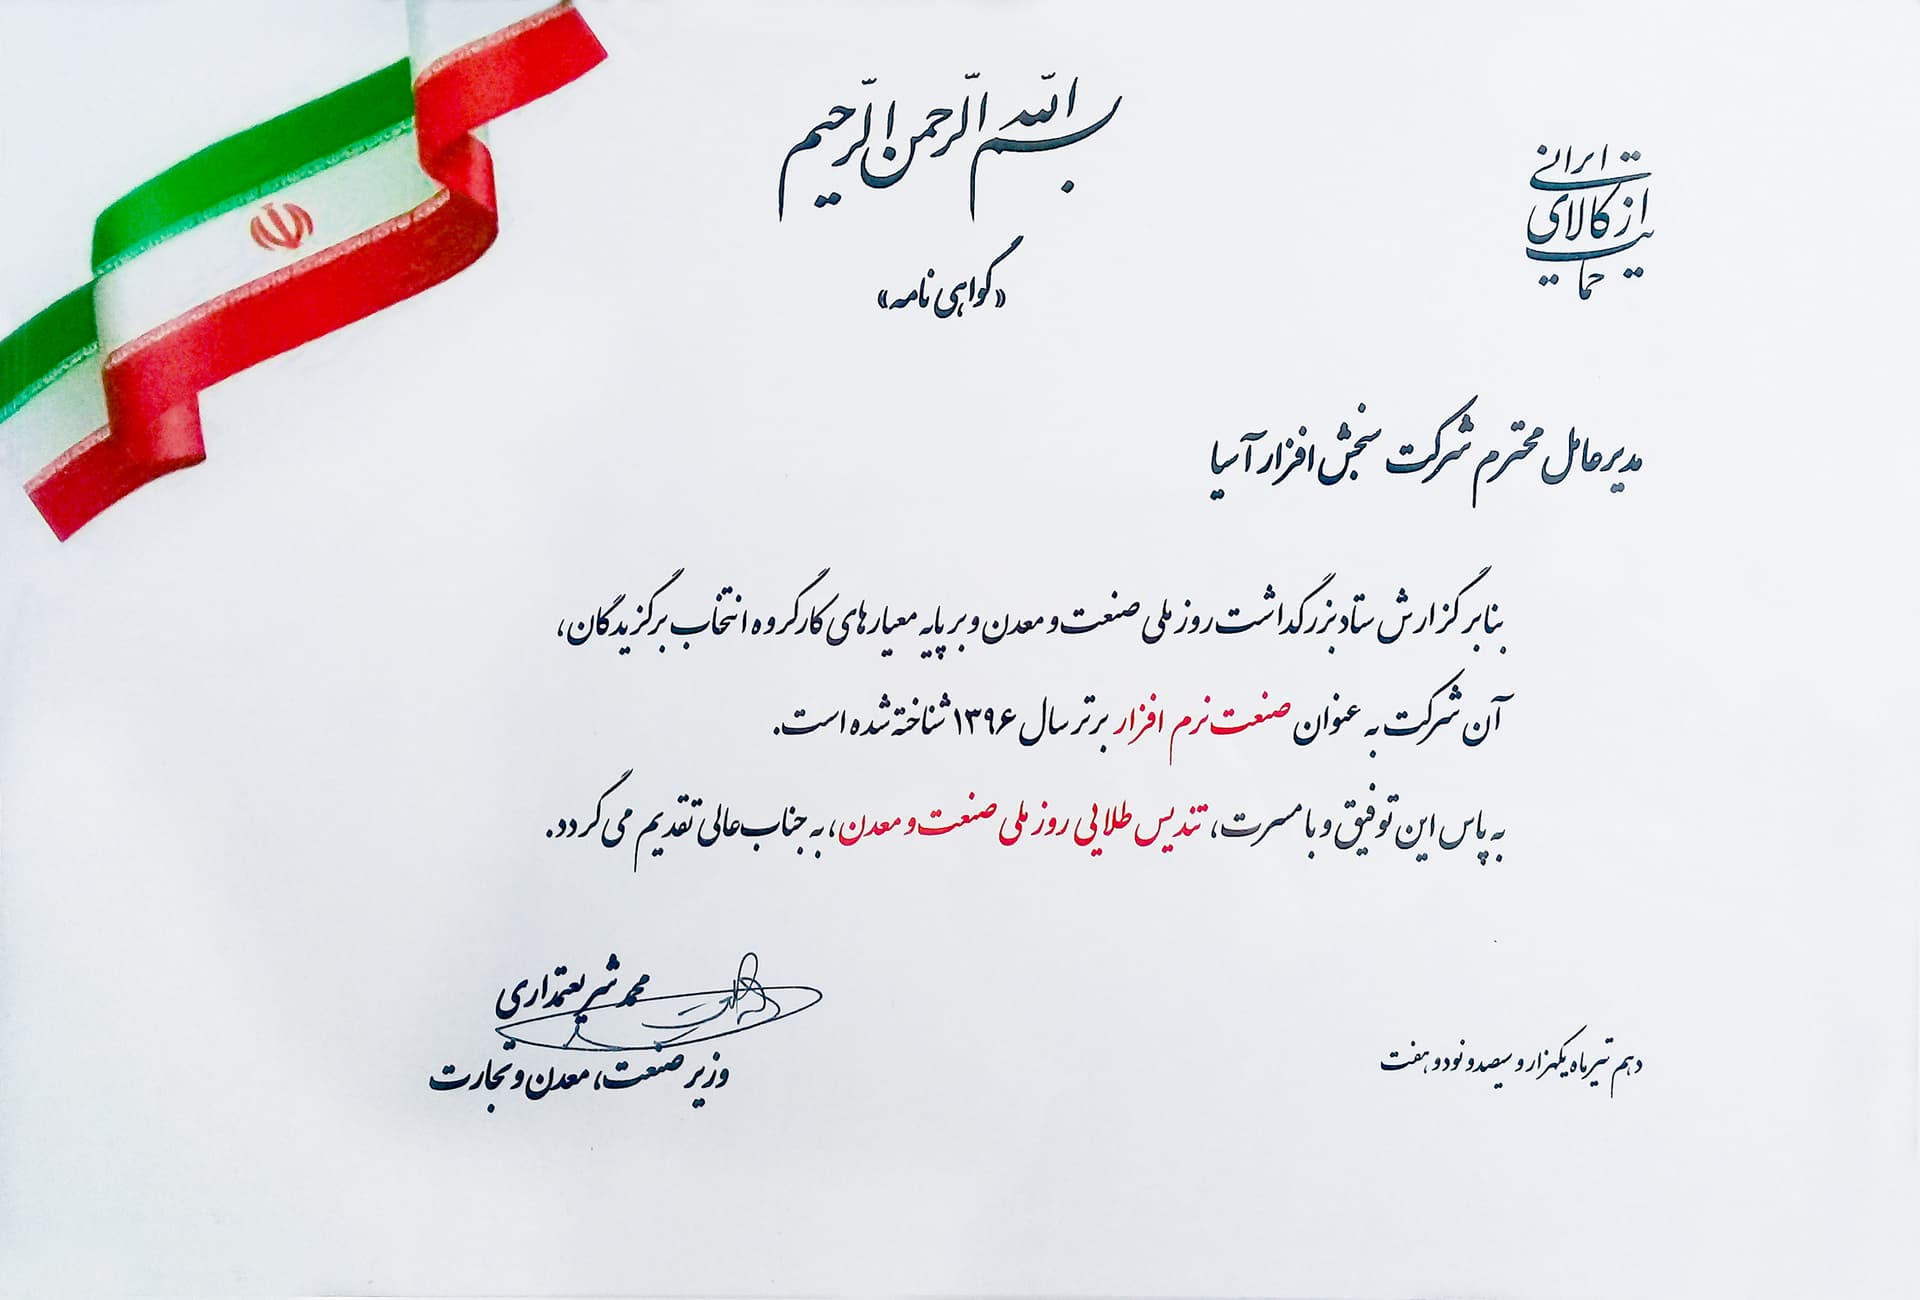 بسم الله الرحمن الرحیم
«گواهی نامه»
حمایت
از کالای
ایرانی
مدیرعامل محترم شرکت سنجش افزار آسیا
بنابر گزارش ستاد بزرگداشت روز ملی صنعت و معدن و بر پایه معیارهای کارگروه انتخاب برگزیدگان،
آن شرکت به عنوان صنعت نرم افزار برتر سال ۱۳۹۶ شناخته شده است.
به پاس این توفیق و با مسرت، تندیس طلایی روز ملی صنعت و معدن، به جناب عالی تقدیم می گردد.
محمد شریعتمداری
وزیر صنعت، معدن و تجارت
دهم تیرماه یکهزار و سیصد و نود و هفت